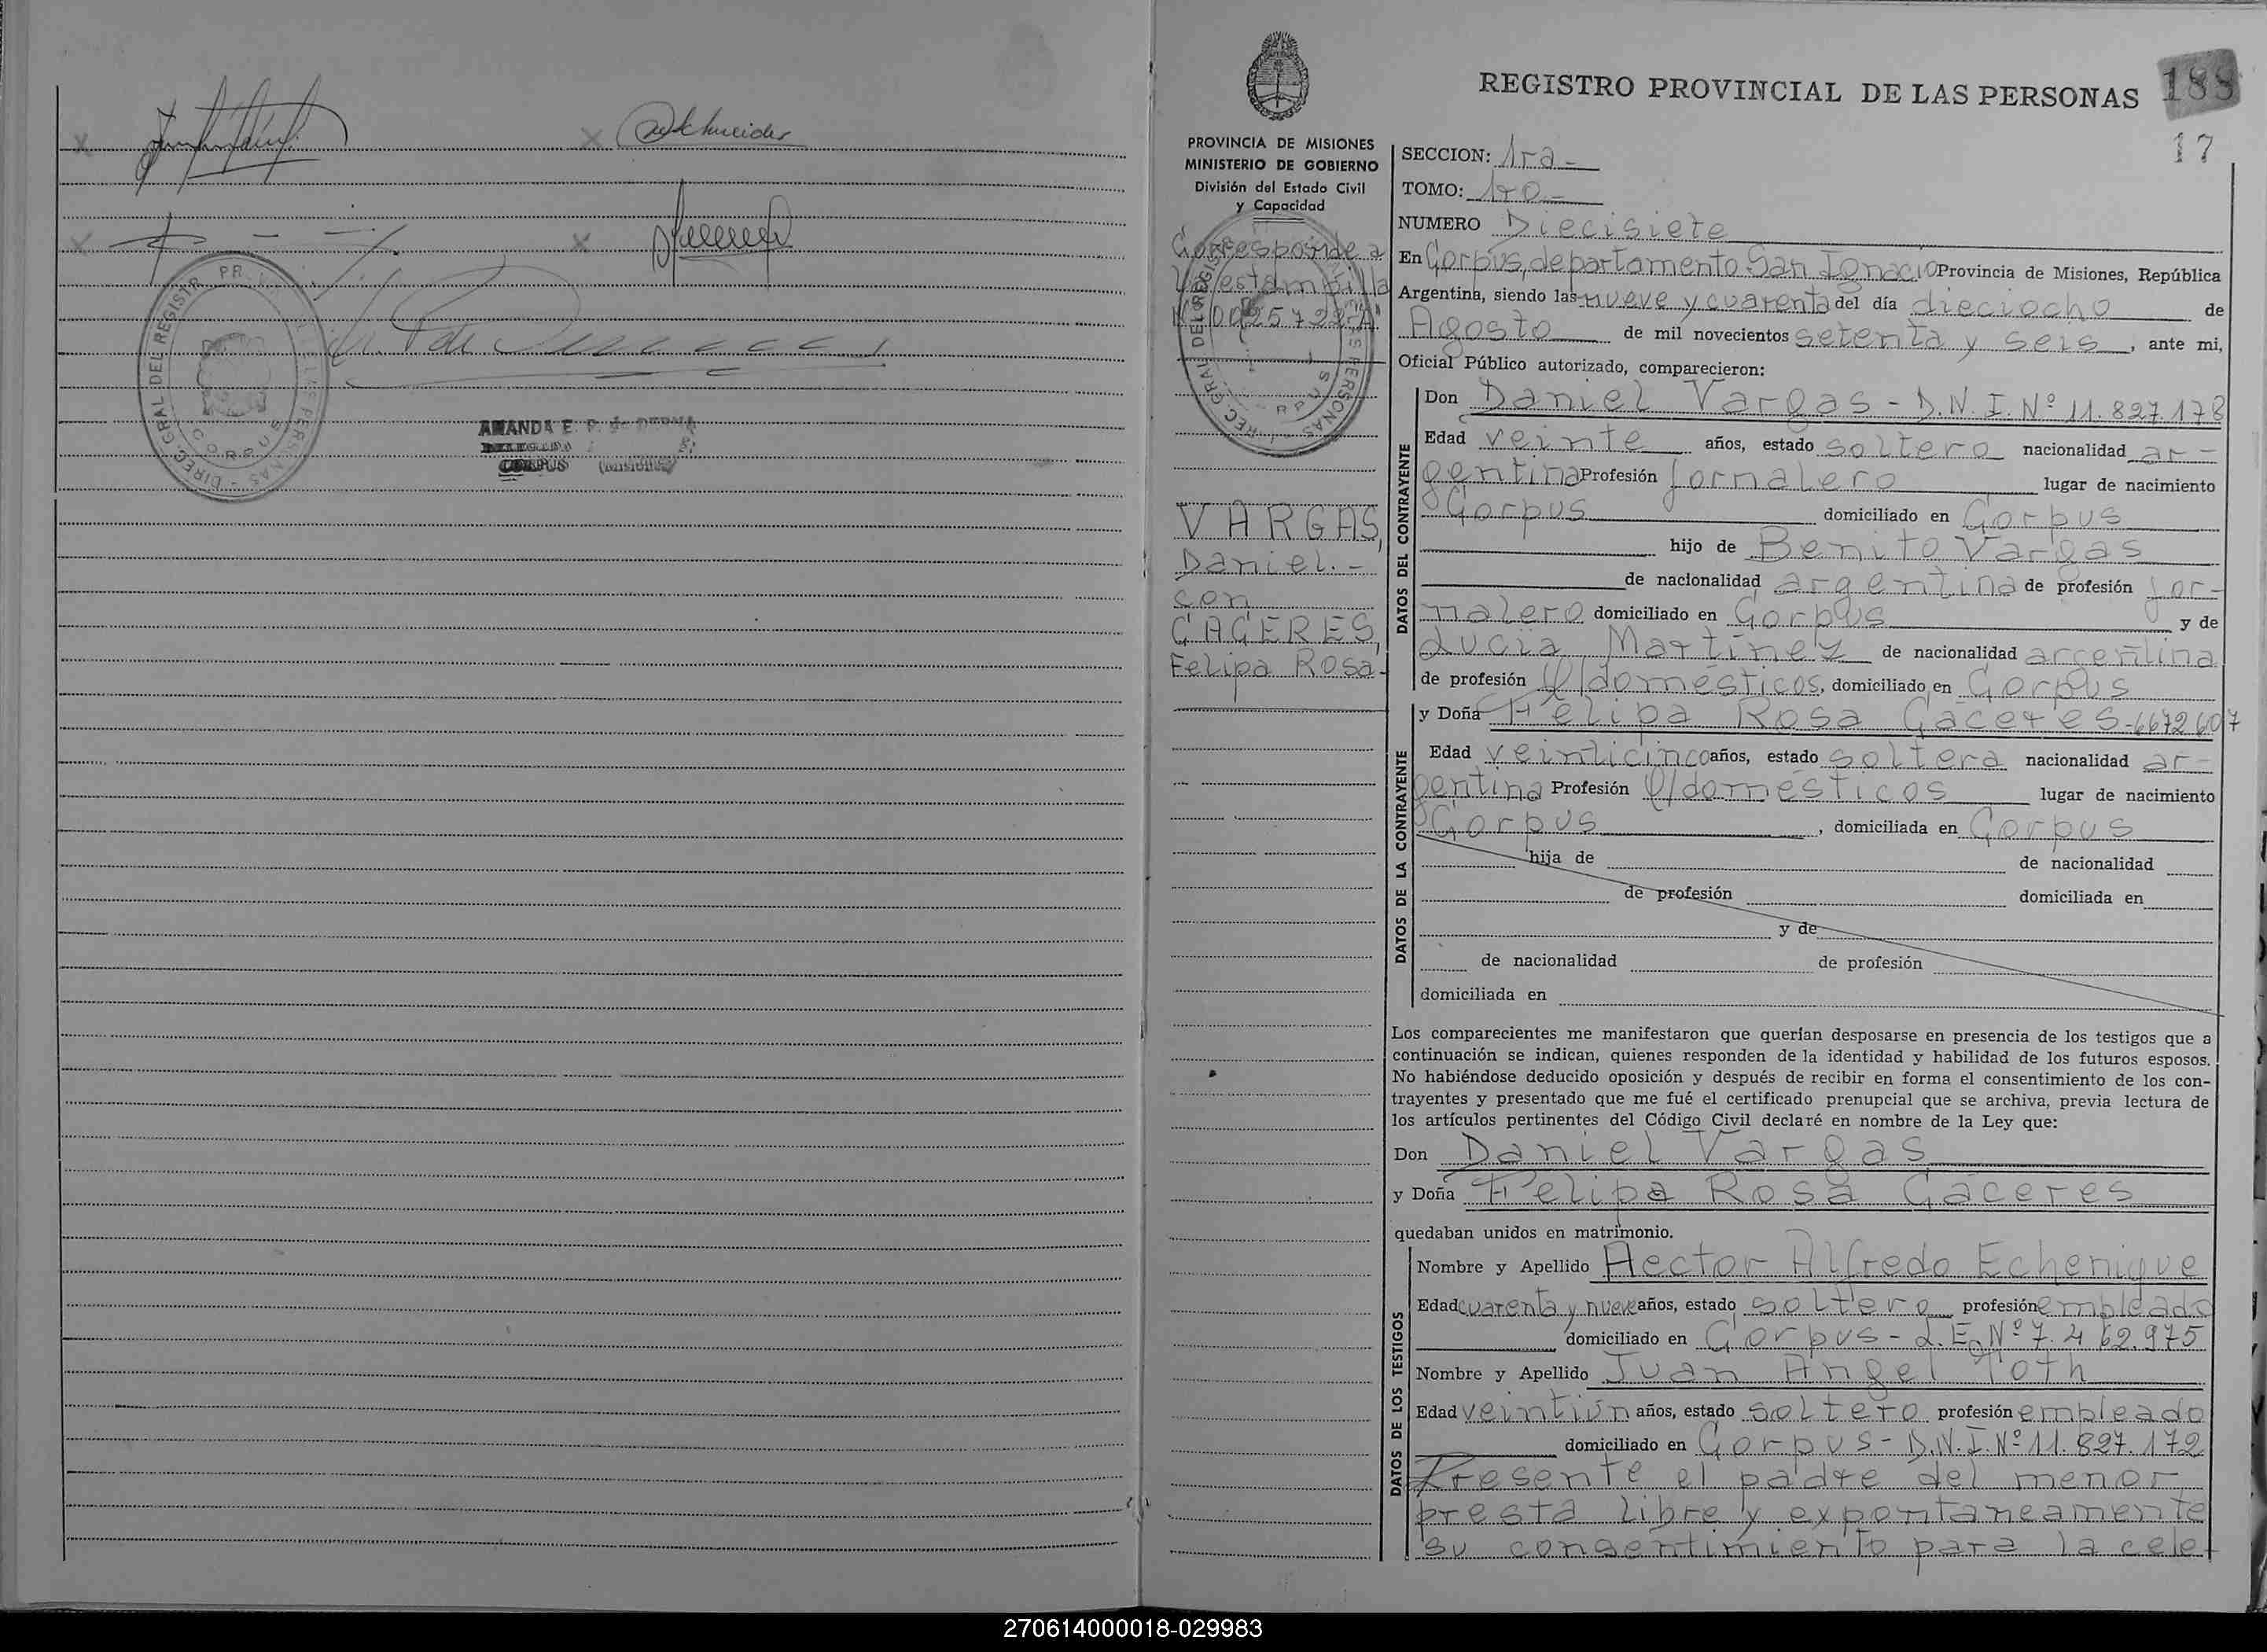 Schneider
DIREC. GRAL DEL REGISTR. PR. DE LAS PERSONAS
CORPUS
AMANDA E. P. de
DELEGADA
CORPUS (MISIONES)
188
REGISTRO PROVINCIAL DE LAS PERSONAS
17
PROVINCIA DE MISIONES
MINISTERIO DE GOBIERNO
División del Estado Civil
y Capacidad
Corresponde a
estampilla
VARGAS,
Daniel.-
con
CACERES,
Felipa Rosa-
SECCION: 1ra-
TOMO: 1ro-
NUMERO Diecisiete
En Corpus, departamento San Ignacio Provincia de Misiones, República
Argentina, siendo las nueve y cuarenta del día dieciocho de
Agosto de mil novecientos setenta y seis, ante mi,
Oficial Público autorizado, comparecieron:
DATOS DEL CONTRAYENTE
Don Daniel Vargas - D.N.I. Nº 11.827.178
Edad veinte años, estado soltero nacionalidad ar-
gentina Profesión Jornalero lugar de nacimiento
Corpus domiciliado en Corpus
hijo de Benito Vargas
de nacionalidad argentina de profesión jor-
nalero domiciliado en Corpus y de
Lucia Martinez de nacionalidad argentina
de profesión Q/domésticos, domiciliado en Corpus
DATOS DE LA CONTRAYENTE
y Doña Felipa Rosa Caceres-6672607
Edad veinticinco años, estado soltera nacionalidad ar-
gentina Profesión Q/domésticos lugar de nacimiento
Corpus, domiciliada en Corpus
hija de de nacionalidad
de profesión domiciliada en
y de
de nacionalidad de profesión
domiciliada en
Los comparecientes me manifestaron que querían desposarse en presencia de los testigos que a
continuación se indican, quienes responden de la identidad y habilidad de los futuros esposos.
No habiéndose deducido oposición y después de recibir en forma el consentimiento de los con-
trayentes y presentado que me fué el certificado prenupcial que se archiva, previa lectura de
los artículos pertinentes del Código Civil declaré en nombre de la Ley que:
Don Daniel Vargas
y Doña Felipa Rosa Caceres
quedaban unidos en matrimonio.
DATOS DE LOS TESTIGOS
Nombre y Apellido Hector Alfredo Echenique
Edad cuarenta y nueve años, estado soltero profesión empleado
domiciliado en Corpus - L.E. Nº 7.462.975
Nombre y Apellido Juan Angel Toth
Edad veintiún años, estado soltero profesión empleado
domiciliado en Corpus - D.N.I. Nº 11.827.172
Presente el padre del menor
presta libre y expontaneamente
su consentimiento para la cele-
270614000018-029983